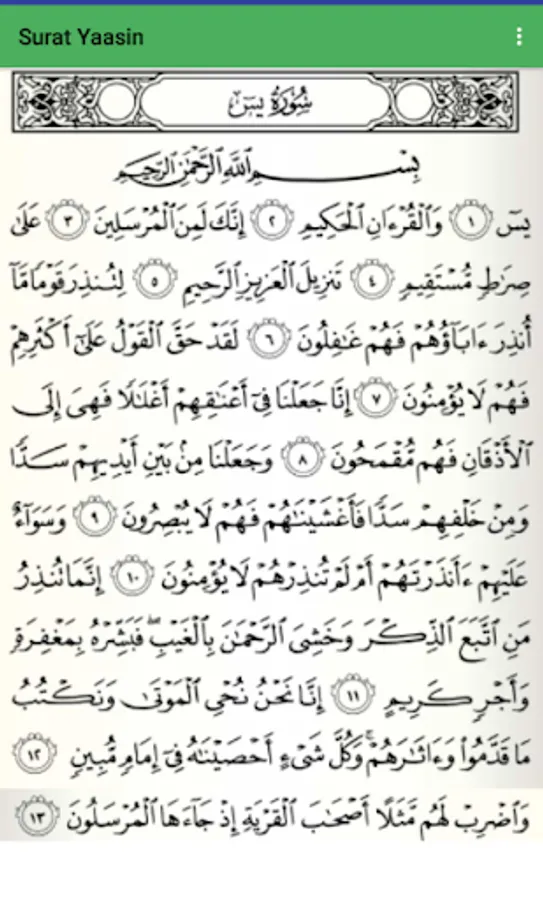 Surat Yaasin
سُورَةُ يسٓ
بِسْمِ ٱللَّهِ ٱلرَّحْمَٰنِ ٱلرَّحِيمِ
يسٓ ١ وَٱلْقُرْءَانِ ٱلْحَكِيمِ ٢ إِنَّكَ لَمِنَ ٱلْمُرْسَلِينَ ٣ عَلَىٰ
صِرَٰطٍ مُّسْتَقِيمٍ ٤ تَنزِيلَ ٱلْعَزِيزِ ٱلرَّحِيمِ ٥ لِتُنذِرَ قَوْمًا مَّآ
أُنذِرَ ءَابَآؤُهُمْ فَهُمْ غَٰفِلُونَ ٦ لَقَدْ حَقَّ ٱلْقَوْلُ عَلَىٰٓ أَكْثَرِهِمْ
فَهُمْ لَا يُؤْمِنُونَ ٧ إِنَّا جَعَلْنَا فِىٓ أَعْنَٰقِهِمْ أَغْلَٰلًا فَهِىَ إِلَى
ٱلْأَذْقَانِ فَهُم مُّقْمَحُونَ ٨ وَجَعَلْنَا مِنۢ بَيْنِ أَيْدِيهِمْ سَدًّا
وَمِنْ خَلْفِهِمْ سَدًّا فَأَغْشَيْنَٰهُمْ فَهُمْ لَا يُبْصِرُونَ ٩ وَسَوَآءٌ
عَلَيْهِمْ ءَأَنذَرْتَهُمْ أَمْ لَمْ تُنذِرْهُمْ لَا يُؤْمِنُونَ ١٠ إِنَّمَا تُنذِرُ
مَنِ ٱتَّبَعَ ٱلذِّكْرَ وَخَشِىَ ٱلرَّحْمَٰنَ بِٱلْغَيْبِ ۖ فَبَشِّرْهُ بِمَغْفِرَةٍ
وَأَجْرٍ كَرِيمٍ ١١ إِنَّا نَحْنُ نُحْىِ ٱلْمَوْتَىٰ وَنَكْتُبُ
مَا قَدَّمُوا۟ وَءَاثَٰرَهُمْ ۚ وَكُلَّ شَىْءٍ أَحْصَيْنَٰهُ فِىٓ إِمَامٍ مُّبِينٍ ١٢
وَٱضْرِبْ لَهُم مَّثَلًا أَصْحَٰبَ ٱلْقَرْيَةِ إِذْ جَآءَهَا ٱلْمُرْسَلُونَ ١٣